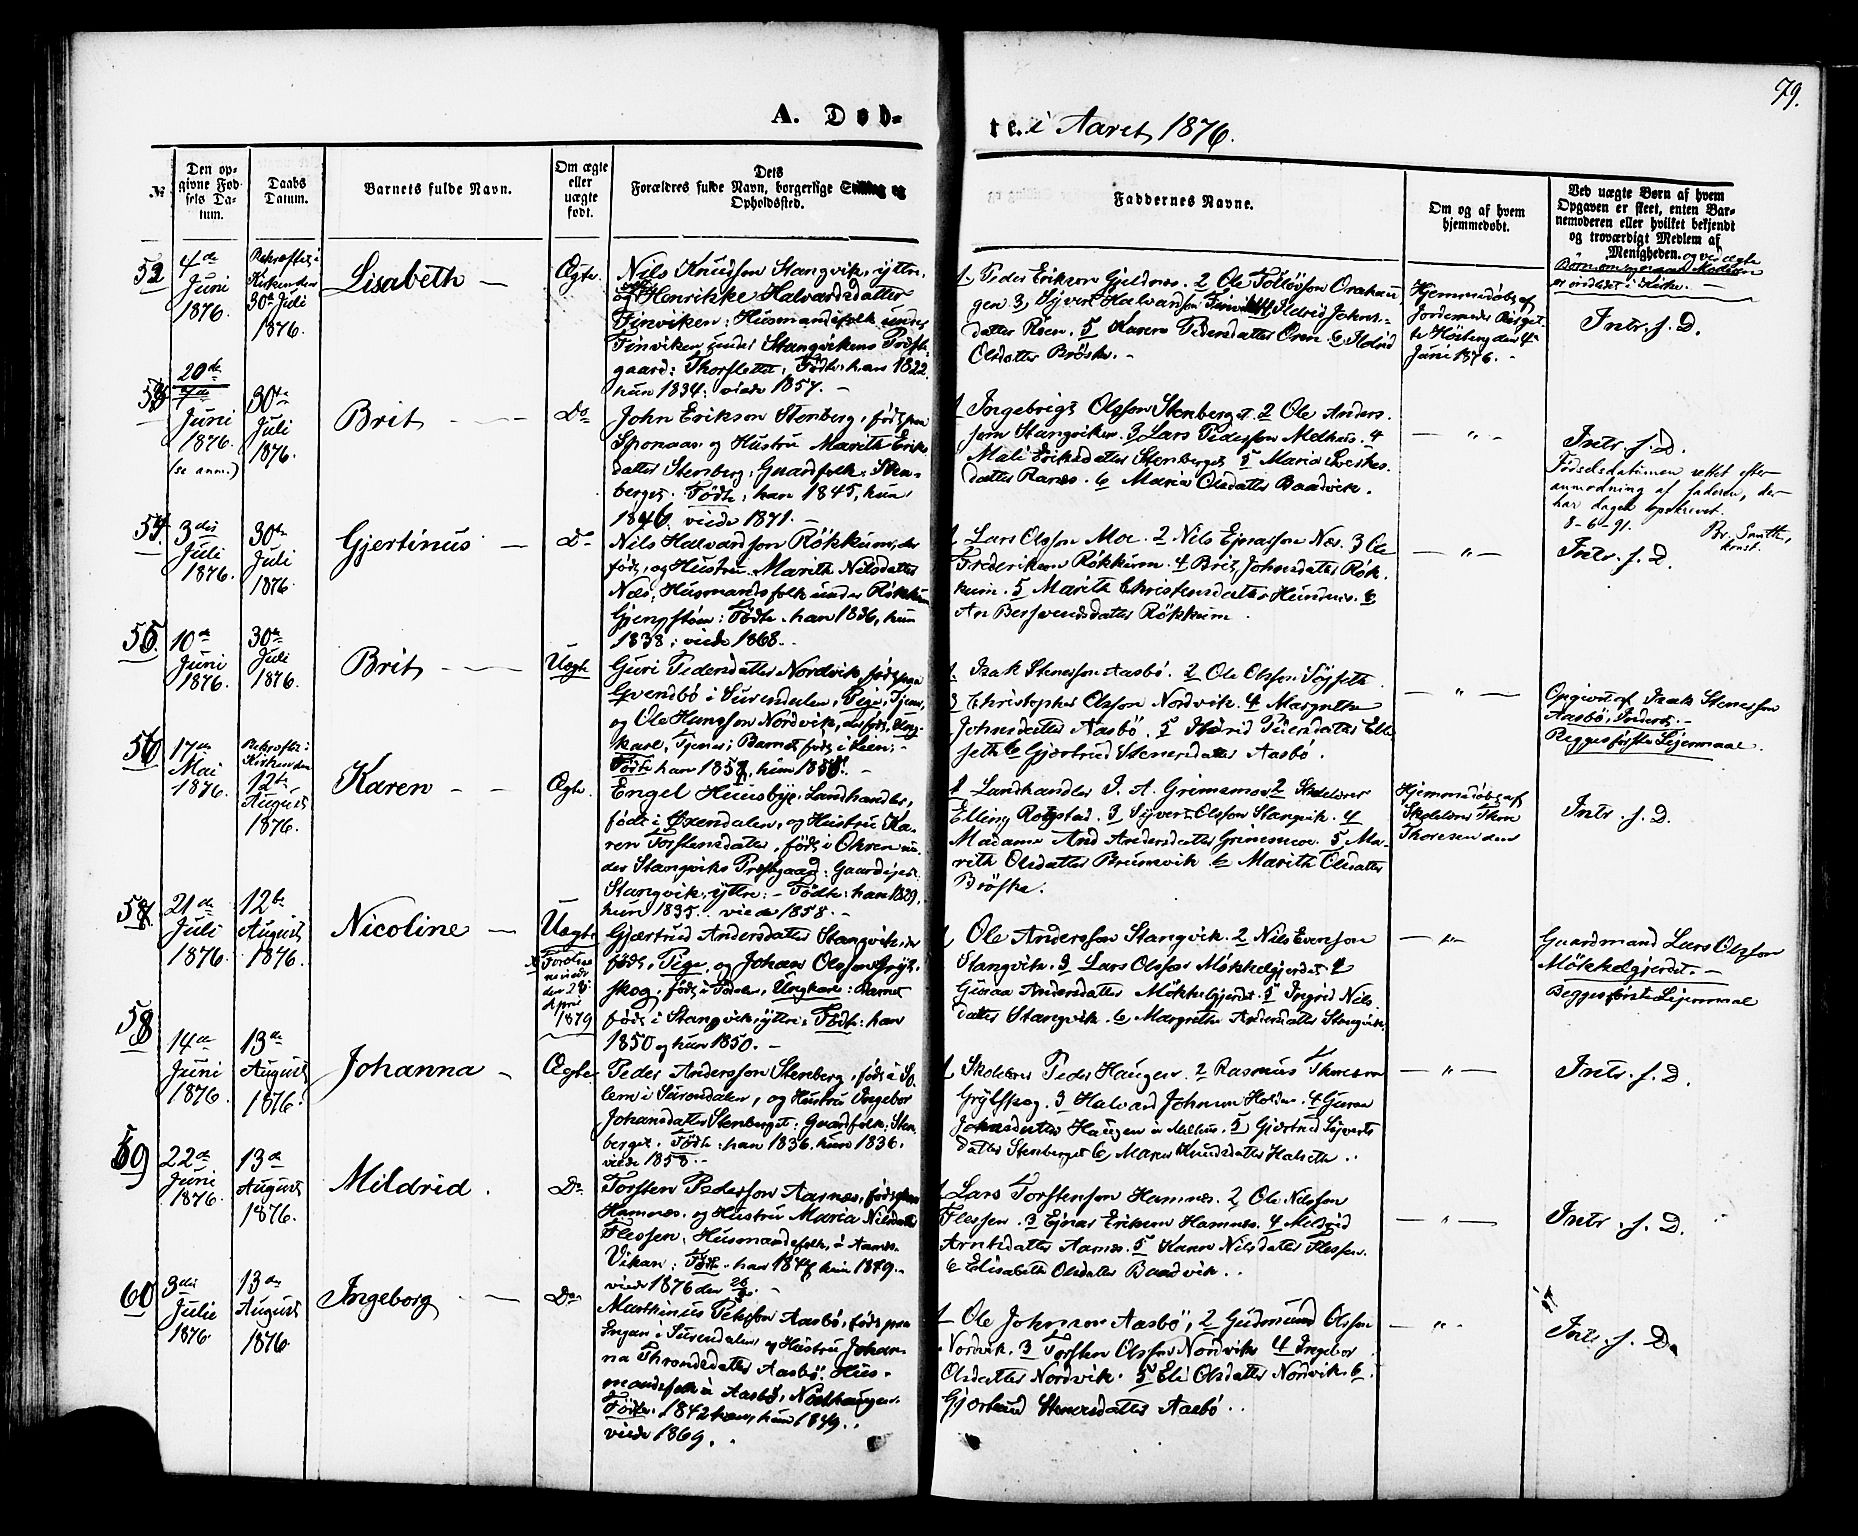 79.
A. Døb-
te. i Aaret 1876.
№
Den op-
givne Fød-
sels Da-
tum.
Daabs
Datum.
Barnets fulde Navn.
Om ægte
eller
uægte
født.
Dets
Forældres fulde Navn, borgerlige Stilling og
Opholdssted.
Faddernes Navne.
Om og af hvem
hjemmedøbt.
Ved uægte Børn af hvem
Opgaven er skeet, enten Bar-
nemoderen eller hvilket bekjendt
og troværdigt Medlem af
Menigheden. og ved ægte
Børn om og naar Moderen
er indledet i Kirke.
52
4de
Juni
1876.
Bekræftet i
Kirken den
30te Juli
1876.
Lisabeth —
Ægte.
Nils Knudson Stangvik, yttre,
og Henrikke Halvardsdatter
Finviken: Husmandsfolk under
Finviken under Stangvikens Præste-
gaard: Thorsletta. Fødte: han 1822,
hun 1834: viede 1857. —
1 Peder Erikson Gjeldnes. 2 Ole
gen 3, Sjvert Halvardson Finvik 4 Ildrid Johns-
datter Røen. 5 Karen Pedersdatter Øren 6 Ildrid
Olsdatter Brøske. —
Hjemmedøbt af
Jordemoder Birget-
te Høiberg den 4de
Juni 1876. —
Intr. f. D.
53
20de
7de
Juni
1876.
(se anm.)
30te
Juli
1876.
Brit — —
Do
John Erikson Stenberg, født paa
Sponaas og Hustru Marith Eriks-
datter Stenberg: Gaardfolk: Sten-
berget. Fødte: han 1845, hun
1846: viede 1871. —
1 Ingebrigt Olsson Stenberget. 2 Ole Anders-
son Stangviken. 3 Lars Pedersson Melhus. 4
Mali Eriksdatter Stenberget 5 Maria
datter Ranes. 6 Maria Olsdatter Baadvik.
— „ —
Intr. f. D.
Fødselsdatumen rettet efter
anmodning af faderen, der
har dagen opskrevet.
8-6-91. Br. Smith,
konst.
54
3die
Juli
1876.
30te
Juli
1876
Gjertinus —
Do
Nils Halvardson Røkkum, der
født, og Hustru Marith Nilsdatter
Næs: Husmandsfolk under Røkkum
Gjengstøen: Fødte: han 1836, hun
1838: viede 1868. —
1 Lars Olsson Moe. 2 Nils Ejnarsson Næs. 3 Ole
Frederikson Røkkum. 4 Brit Johnsdatter Røk-
kum. 5 Marith Christensdatter Hundnes. 6
An Bersvendsdatter Røkkum.
— „ —
Intr. f. D.
55.
10de
Juni
1876.
30te
Juli
1876.
Brit — —
Uægte
Guri Pedersdatter Nordvik, født paa
Qvendbø i Surendalen, Pige, Tjener,
og Ole Hansson Nordvik, der født, Ung-
karl, Tjener; Barnet født i Leen: —
Fødte han 1857, hun
1. Isak Stenersson Aasbø. 2 Ole Olsson Søyseth
3 Christopher Olsson Nordvik. 4 Margrethe
Johnsdatter Aasbø. 5 Ildrid Pedersdatter Elle-
seth 6 Gjertrud Stenersdatter Aasbø.
— „ —
Opgivet af Isak Stenersson
Aasbø, Inderst. —
Begges første Lejermaal.
56
17de
Mai
1876.
Bekræftet i
Kirken den
12te
August
1876.
Karen — —
Ægte.
Engel Huusbye, Landhandler,
født i Øxendalen, og Hustru Ka-
ren Torstensdatter, født i Okren un-
der Stangviks Præstegaard: Gaardejer:
Stangvik, yttre: — Fødte: han 1829,
hun 1835. viede 1858. —
1 Landhandler I. A. Grimsmoe 2 Skolelærer
Elling Rogstad. 3 Sjvert Olsson Stangvik. 4
Madame And Andersdatter Grimsmoe. 5 Ma-
rith Olsdatter Brunsvik 6 Marith Olsdatter
Brøske.
Hjemmedøbt af
Skolelærer Thore
Thoresen den
Intr. f. D.
57
21de
Juli
1876.
12te
August
1876.
Nicoline —
Uægte
x Forældre-
ne viede
den 28.
April
1879
Gjærtrud Andersdatter Stangvik, der
født, Pige, og Johan Olsson Gryt-
skog, født i Todalen, Ungkarl: Barnet
født i Stangvik, yttre: Fødte: han
1850 og hun 1850. —
1 Ole Andersson Stangvik. 2 Nils Evenson
Stangvik. 3 Lars Olsson Møkkelgjerdet. 4
Guraa Andersdatter Møkkelgjerdet. 5 Ingrid Nils-
datter Stangvik. 6 Margrethe Andersdatter Stangvik.
— „ —
Gaardmand Lars Olsson
Møkkelgjerdet. —
Begges første Lejermaal
58
14de
Juni
1876.
13de
August
1876.
Johanna —
Ægte
Peder Andersson Stenberg, født i So-
lem i Surendalen, og Hustru Ingebor
Johansdatter Stenberget: Gaardfolk: Sten-
berget. Fødte: han 1836, hun 1836.
viede 1858. —
1 Skolelærer Peder Haugen. 2 Rasmus Thoreson
Grytskog. 3 Halvard Johnson Holden. 4 Guraa
Johnsdatter Haugen i Melhus. 5 Gjertrud Sjverts-
datter Stenberget 6 Maren Knudsdatter Halseth.
— „ —
Intr. f. D.
59
22de
Juni
1876.
13de
August
1876.
Mildrid.
Do
Torsten Pederson Aarnes, født paa
Hamnes, og Hustru Maria Nilsdatter
Flessen, Husmandsfolk, i Aarnes-
Vikan: Fødte: han 1847 hun 1849. —
viede 1876 den
1 Lars Torstenson Hamnes. 2 Ole Nilsson
Flessen. 3 Ejnar Erikson Hamnes. 4 Mildrid
Arntsdatter Aarnes. 5 Karen Nilsdatter Flessen.
6 Elisabeth Olsdatter Baadvik.
— „ —
Intr. f. D.
60
3die
Julie
1876.
13de
August
1876.
Ingeborg —
Do
Marthinus Pederson Aasbø, født paa
Engan i Surendalen og Hustru Johan-
na Throndsdatter Aasbø. Hus-
mandsfolk i Aasbø, Nordhaugen.
Fødte: 1842 han, hun 1849.
viede 1869.
1 Ole Johnson Aasbø, 2 Gudmund Olsson
Nordvik. 3 Torsten Olsson Nordvik 4 Ingebor
Olsdatter Nordvik. 5 Eli Olsdatter Nordvik. 6
Gjærtrud Stenersdatter Aasbø.
— „ —
Intr. f. D.